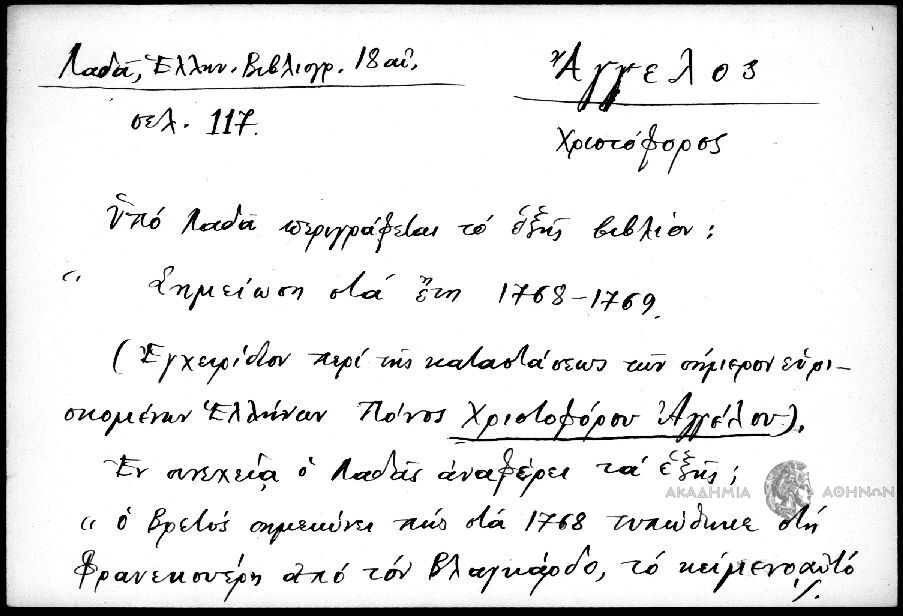 Λαδᾶ, Ἑλλην. Βιβλιογρ. 18 αἰ.
σελ. 117.
Ἄγγελος
Χριστόφορος
Ὑπό Λαδᾶ περιγράφεται τό ἑξῆς βιβλίον:
" Σημείωση στά ἔτη 1768-1769.
(Ἐγχειρίδιον περί τῆς καταστάσεως τῶν σήμερον εὑρι-
σκομένων Ἑλλήνων Πόνος Χριστοφόρου Ἀγγέλου).
Ἐν συνεχείᾳ ὁ Λαδᾶς ἀναφέρει τά ἑξῆς:
" ὁ Βρετός σημειώνει πώς στά 1768 τυπώθηκε στή
Φρανεκουέρη ἀπό τόν Βλαγκάρδο, τό κείμενο αὐτό
./.
ΑΚΑΔΗΜΙΑ ΑΘΗΝΩΝ